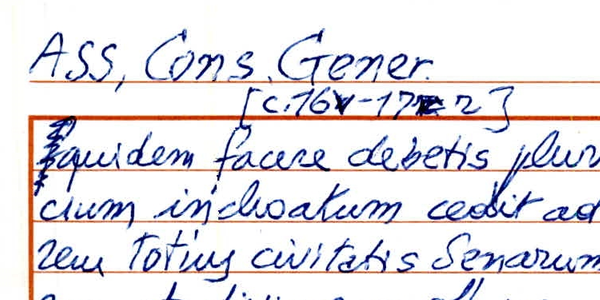 Ass, Cons. Gener.
[c. 16v-17r 2]
Equidem facere debetis plur
cium inchoatum cedit ad
rem totius civitatis Senarum